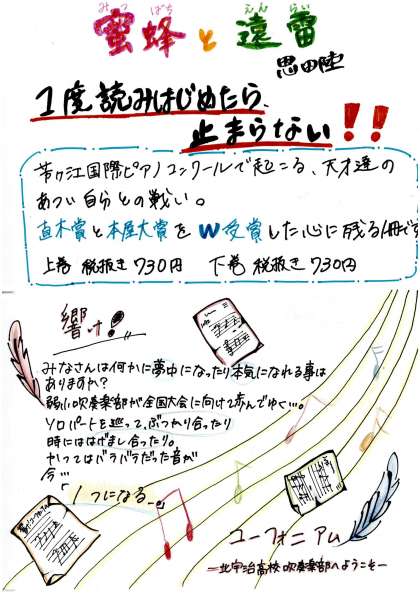 みつ ばち えん らい
蜜蜂と遠雷
恩田陸
1度読みはじめたら、
止まらない!!
芳ヶ江国際ピアノコンクールで起こる、天才達の
あつい自分との戦い。
直木賞と本屋大賞をW受賞した心に残る1冊です
上巻 税抜き730円 下巻 税抜き730円
響け!
みなさんは何かに夢中になったり本気になれる事は
ありますか?
弱小吹奏楽部が全国大会に向けて歩んでゆく…。
ソロパートを巡って、ぶつかり合ったり
時にははげまし合ったり。
かつてはバラバラだった音が
今…
「1つになる―。」
ユーフォニアム
―北宇治高校吹奏楽部へようこそ―